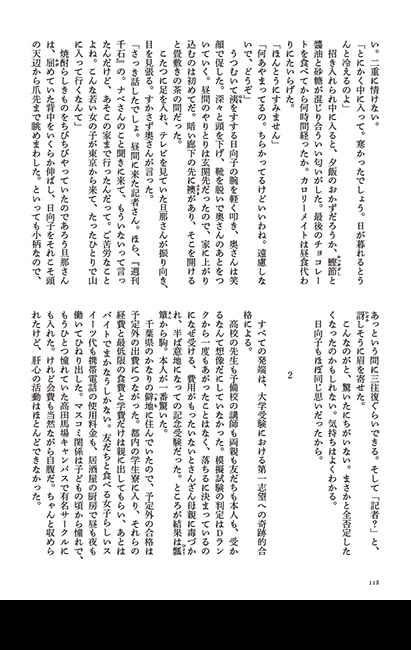 い。二重に情けない。
「とにかく中に入って。寒かったでしょう。日が暮れるとう
んと冷えるのよ」
招き入れられ中に入ると、夕飯のおかずだろうか、鰹節と
醬油と砂糖が混じり合ういい匂いがした。最後のチョコレー
トを食べてから何時間経ったか。カロリーメイトは昼食代わ
りにたいらげた。
「ほんとうにすみません」
「何あやまってるの。ちらかってるけどいいわね。遠慮しな
いで、どうぞ」
うつむいて洟をすする日向子の腕を軽く叩き、奥さんは笑
顔で促した。深々と頭を下げ、靴を脱いで奥さんのあとをつ
いていく。昼間のやりとりは玄関先だったので、家に上がり
込むのは初めてだ。暗い廊下の先に襖があり、そこを開ける
と畳敷きの茶の間だった。
こたつに足を入れ、テレビを見ていた旦那さんが振り向き、
目を見張る。すかさず奥さんが言った。
「さっき話したでしょ。昼間に来た記者さん。ほら、『週刊
千石』の。ナベさんのこと聞きに来て、もういないって言っ
たんだけど、あそこの家まで行ったんだって。ご苦労なこと
よね。こんな若い女の子が東京から来て、たったひとりで山
に入って行くなんて」
焼酎らしきものをちびちびやっていたのであろう旦那さん
は、屈めていた背中をいくらか伸ばし、日向子をそれこそ頭
の天辺から爪先まで眺めまわした。といっても小柄なので、
あっという間に三往復ぐらいできる。そして「記者？」と、
訝しそうに眉を寄せた。
こんなのがと、驚いたにちがいない。まさかと全否定した
くなったのかもしれない。気持ちはよくわかる。
日向子もほぼ同じ思いだったから。
2
すべての発端は、大学受験における第一志望への奇跡的合
格による。
高校の先生も予備校の講師も両親も友だちも本人も、受か
るなんて想像だにしていなかった。模擬試験の判定はDラン
クから一度もあがったことはなく、落ちるに決まっているの
になぜ受ける、費用がもったいないとさんざん母親に毒づか
れ、半ば意地になっての記念受験だった。ところが結果は瓢
簞から駒。本人が一番驚いた。
千葉県のかなりの僻地に住んでいたので、予定外の合格は
予定外の出費につながった。都内の学生寮に入り、それらの
経費と最低限の食費と学費だけは親に出してもらい、あとは
バイトでまかなうしかない。友だちと食べる女子らしいス
イーツ代も携帯電話の使用料金も、居酒屋の厨房で昼も夜も
働いてひねり出した。マスコミ関係は子どもの頃から憧れで、
もうひとつ憧れていた高田馬場キャンパスで有名サークルに
も入れた。けれど会費も当然ながら自腹だ。ちゃんと収めら
れたけど、肝心の活動はほとんどできなかった。
118